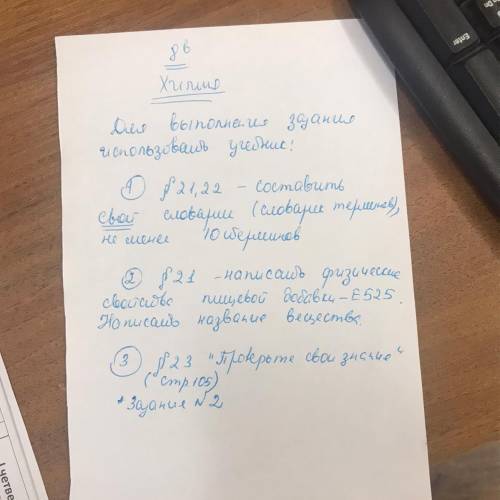 8в
Химия
Для выполнения задания
использовать учебник:
1 § 21,22 – составить
свой словарик (словарик терминов),
не менее 10 терминов
2 § 21 – написать физические
свойства пищевой добавки – Е525.
Написать название вещества.
3 § 23 "Проверьте свои знание"
(стр 105)
* Задание №2
Enter
Ctrl